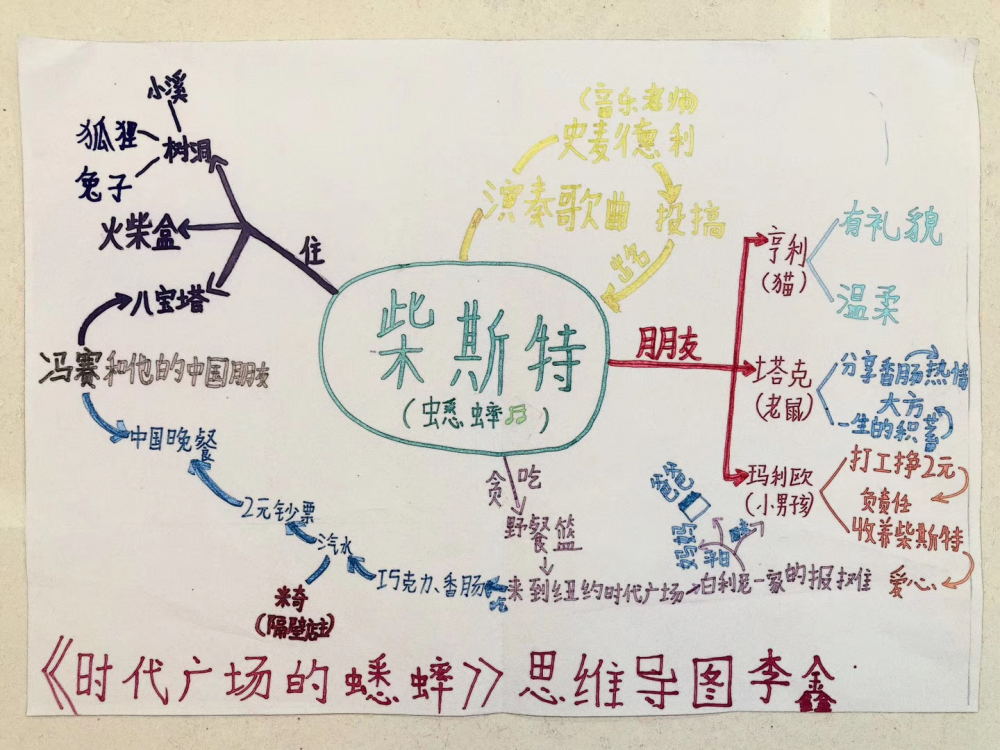 小溪
狐狸
树洞
兔子
火柴盒
住
八宝塔
冯赛和他的中国朋友
中国晚餐
2元钞票
汽水
米奇
(隔壁店主)
巧克力、香肠
吃
(音乐老师)
史麦德利
演奏歌曲
投搞
出名
柴斯特
(蟋蟀)
朋友
亨利
(猫)
有礼貌
温柔
塔克
(老鼠)
分享香肠热情
大方
一生的积蓄
玛利欧
(小男孩)
打工挣2元
负责任
收养柴斯特
爱心
贪吃
野餐篮
来到纽约时代广场
白利尼一家的报摊
爸爸
妈妈
平日
《时代广场的蟋蟀》思维导图李鑫